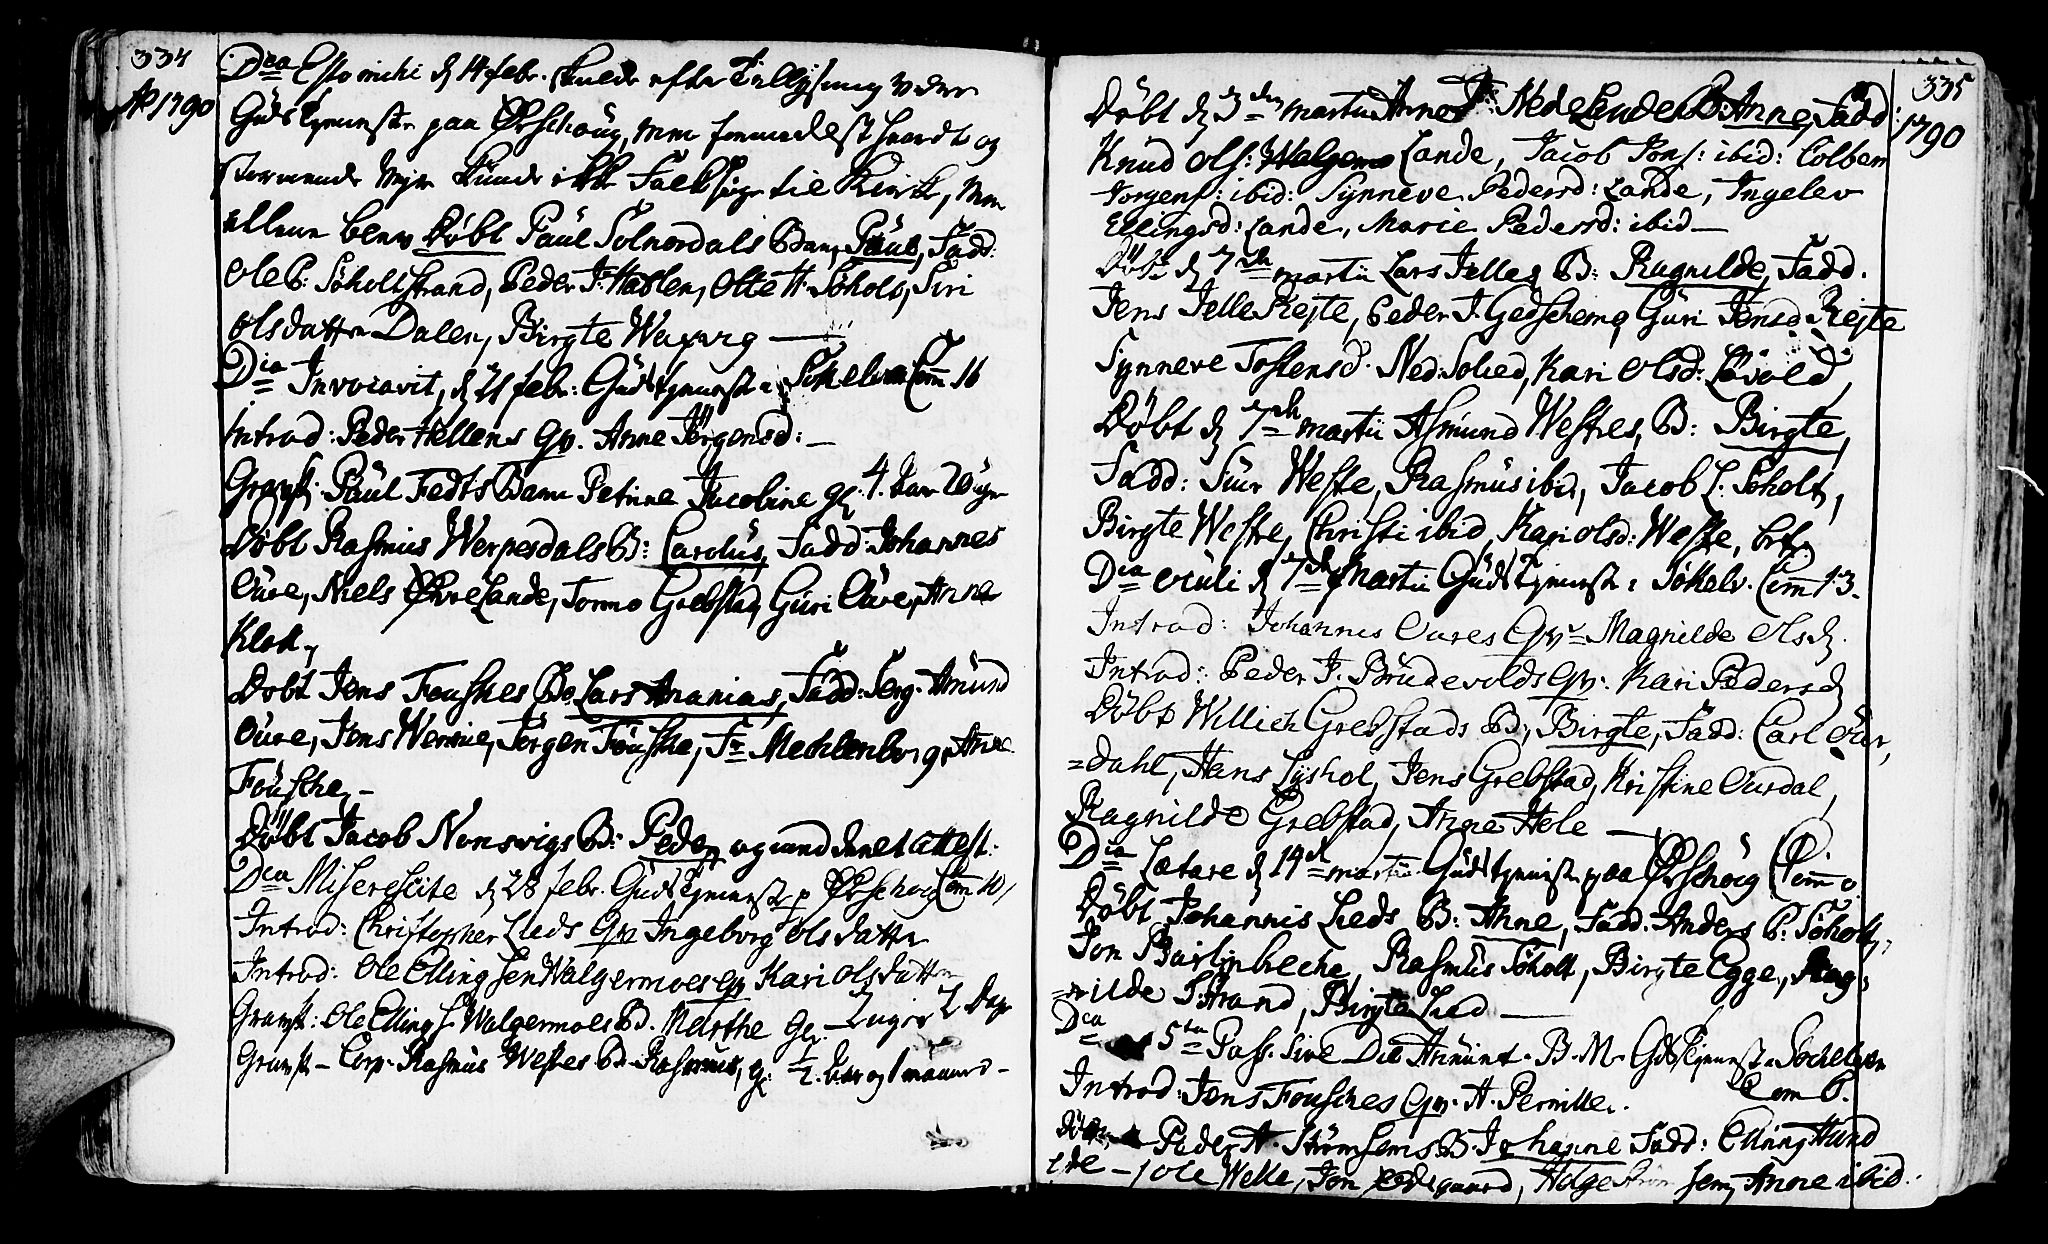 334
Ao 1790
Dca Esto michi d 14 febr. skulde efter Tillysning være
Gudstjeneste paa Ørschoug, men formedelst haardt og
stormende Vejr kunde ikke Folk søge til Kirke, men
allene blev Døbt Paul Solnørdals Barn, Paul, Fadd:
Ole P: Søholtstrand, Peder J: Hablen, Otte H. Søholt, Siri
Olsdatter Dalen, Birgte
Dca Invocavit, d 21 febr: Gudstjeneste i Søkelven Com 16
Introd: Peder Hellens Qv. Anne Jørgensd: —
Grafsf: Paul Fedts Barn Petrine Jacobine gl: 4. Aar 20 Uger
Døbt Rasmus Werpesdals B: Carolus, Fadd: Johannes
Oure, Niels Øvre Lande, Tormo Grebstad, Guri Oure, Anne
Klok,
Døbt Jens Fouskes B. Lars Ananias, Fadd: Serg. Amund
Oure, Jens Werine, Jørgen Fouske, Fr Mechlenborg, Anne
Fousche, –
Døbt Jacob Nonsvigs B: Peder
Dca Miserescite d 28 febr. Gudstjeneste p Ørschoug Com 10,
Introd: Christopher Lieds Qv Ingeborg Olsdatter
Introd: Ole Ellingsen Walgermoes Qv Kari Olsdatter
Grafsf: Ole Ellings Walgermoes B. Marthe Gl. — 2 Uger 2 Dage
Grafsf – Corp. Rasmus Westres B. Rasmus, gl ½ Aar og 1 maaned –
335
1790
Døbt d 3 den martii Arne Nede Landes B: Anne, Fadd:
Knud Ols: Walgermo Lande, Jacob Jons: ibid: Colben
Jorgens: ibid: Synneve Pedersd: Lande, Ingelev
Ellingsd: Lande, Marie Pedersd: ibid —
Døbt d 7de martii Lars Jelles B: Ragnilde, Fadd.
Jens Jelle Rejte, Peder J. Giedschems Guri Jensd Rejte
Synneve Tostensd. Ned: Solied, Kari Olsd: Løvold,
Døbt d 7de martii Asmund Westres, B: Birgte,
Fadd: Siur Westre, Rasmus ibid, Jacob L. Søholt,
Birgte Westre, Christi ibid, Kari Olsd: Westre,
Dca Oculi d 7de Martii Gudstjeneste i Søkelv. Com 13.
Introd: Johannes Oures Qv – Magnilde Olsd.
Introd: Peder J. Brudevolds Qv. Kari Pedersd
Døbt Willich Grebstads B:, Birgte, Fadd: Carl Our,
=dahl, Hans Lyshol, Jens Grebstad, Kristine Ourdal,
Ragnilde Grebstad, Anne Hole —
Dca Lætare d 14de martii Gudstjeneste paa Ørschoug Com 0
Døbt Johannis Lieds B: Anne, Fadd. Anders P: Søholt,
Jon Bartinbreche, Rasmus Søholt, Birgte Egge, Rag=
=nilde Strand, Birgte Lied —
Dca 5ta Pass. sive Die Annunt. B. M. Gudstjeneste i Søchelven
Com 6.
Introd: Jens Fousches Qv. A. Pernille.
Døbt Peder A. Strømsems B. Johanne Fadd: Elling Hund
eide — Ole Welle, Jon Ødegaard, Helge Strømsem, Anne ibid.